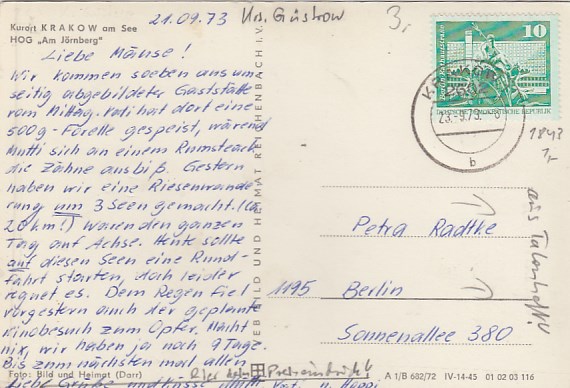 21.09.73 Krs. Güstrow
3,-
Kurort KRAKOW am See
HOG „Am Jörnberg"
Liebe Mäuse!
Wir kommen soeben aus um-
seitig abgebildeter Gaststätte
vom Mittag. Vati hat dort eine
500g-Forelle gespeist, während
Mutti sich an einem Rumsteack
die Zähne ausbiß. Gestern
haben wir eine Riesenwande-
rung um 3 Seen gemacht! (ca.
20 km!) Waren den ganzen
Tag auf Achse. Heute sollte
auf diesen Seen eine Rund-
fahrt starten, doch leider
regnet es. Dem Regen fiel
vorgestern auch der geplante
Kinobesuch zum Opfer. Macht
nix, wir haben ja noch 9 Tage.
Bis zum nächsten mal allen
Liebe Grüße
Foto: Bild und Heimat (Darr)
BILD UND HEIMAT REICHENBACH I.V.
10
Berlin
DEUTSCHE DEMOKRATISCHE REPUBLIK
b
1843
1,-
Petra Radtke
1195 Berlin
Sonnenallee 380
A 1/B 682/72 IV-14-45 01 02 03 116